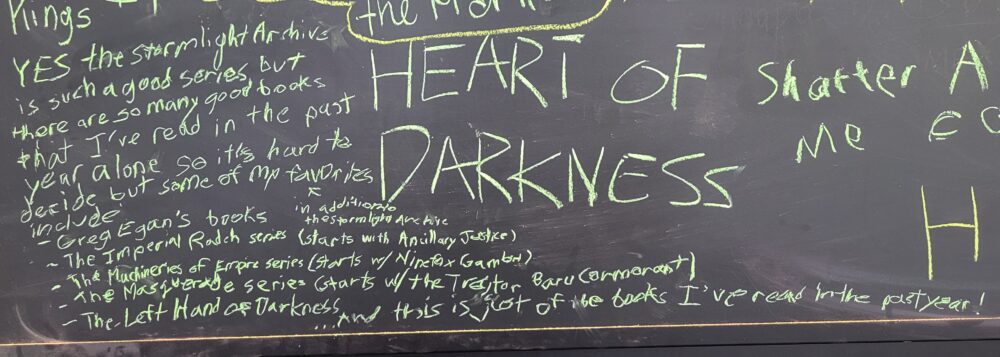 Kings
YES the Stormlight Archive
is such a good series, but
there are so many good books
that I've read in the past
year alone so it's hard to
decide but some of my favorites
in addition to
the Stormlight Archive
include:
- Greg Egan's books
- The Imperial Radch series (starts with Ancillary Justice)
- The Machineries of Empire series (starts w/ Ninefox Gambit)
- The Masquerade series (starts w/ the Traitor Baru Cormorant)
- The Left Hand of Darkness
...And this is just of the books I've read in the past year!
the
HEART OF
DARKNESS
Shatter A
Me
H